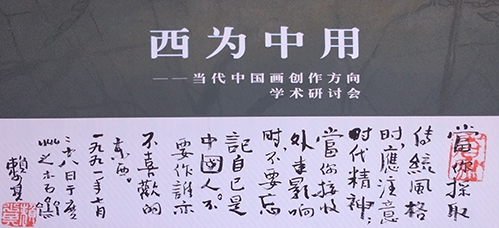 西为中用
——当代中国画创作方向
学术研讨会
當你採取
傳統風格
時，應注意
時代精神；
當你接收
外來影響
時不要忘
記自己是
中國人。不
要作誰亦
不喜歡的
東西。
一九九一年十月
二十八日于廣
州之木石齋
賴少其